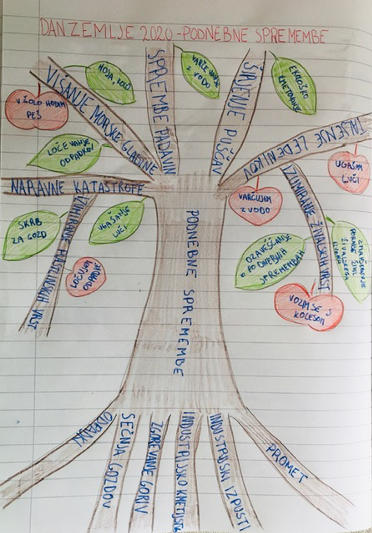 DAN ZEMLJE 2020 - PODNEBNE SPREMEMBE
VIŠANJE MORSKE GLADINE
SPREMEMBE PADAVIN
ŠIRJENJE PUŠČAV
TALJENJE LEDENIKOV
NARAVNE KATASTROFE
IZUMIRANJE RASTLINSKIH VRST
IZUMIRANJE ŽIVALSKIH VRST
HOJA, KOLO
VARČEVANJE
Z VODO
EKOLOŠKO
KMETOVANJE
V ŠOLO HODIM
PEŠ
LOČEVANJE
ODPADKOV
UGAŠAM
LUČI
VARČUJEM
Z VODO
SKRB
ZA GOZD
UGAŠANJE
LUČI
LOČUJEM
ODPADKE
OZAVEŠČANJE
O PODNEBNIH
SPREMEMBAH
VOZIM SE S
KOLESOM
PODNEBNE SPREMEMBE
ODPADKI
SEČNJA GOZDOV
ZGOREVANJE GORIV
INDUSTRIJSKO KMETIJSTVO
INDUSTRIJSKI IZPUSTI
PROMET